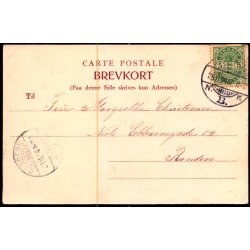 CARTE POSTALE
BREVKORT
(Paa denne Side skrives kun Adressen)
Til Frue Margrethe Christensen
Niels Ebbesensgade 14
Randers
K. B. K